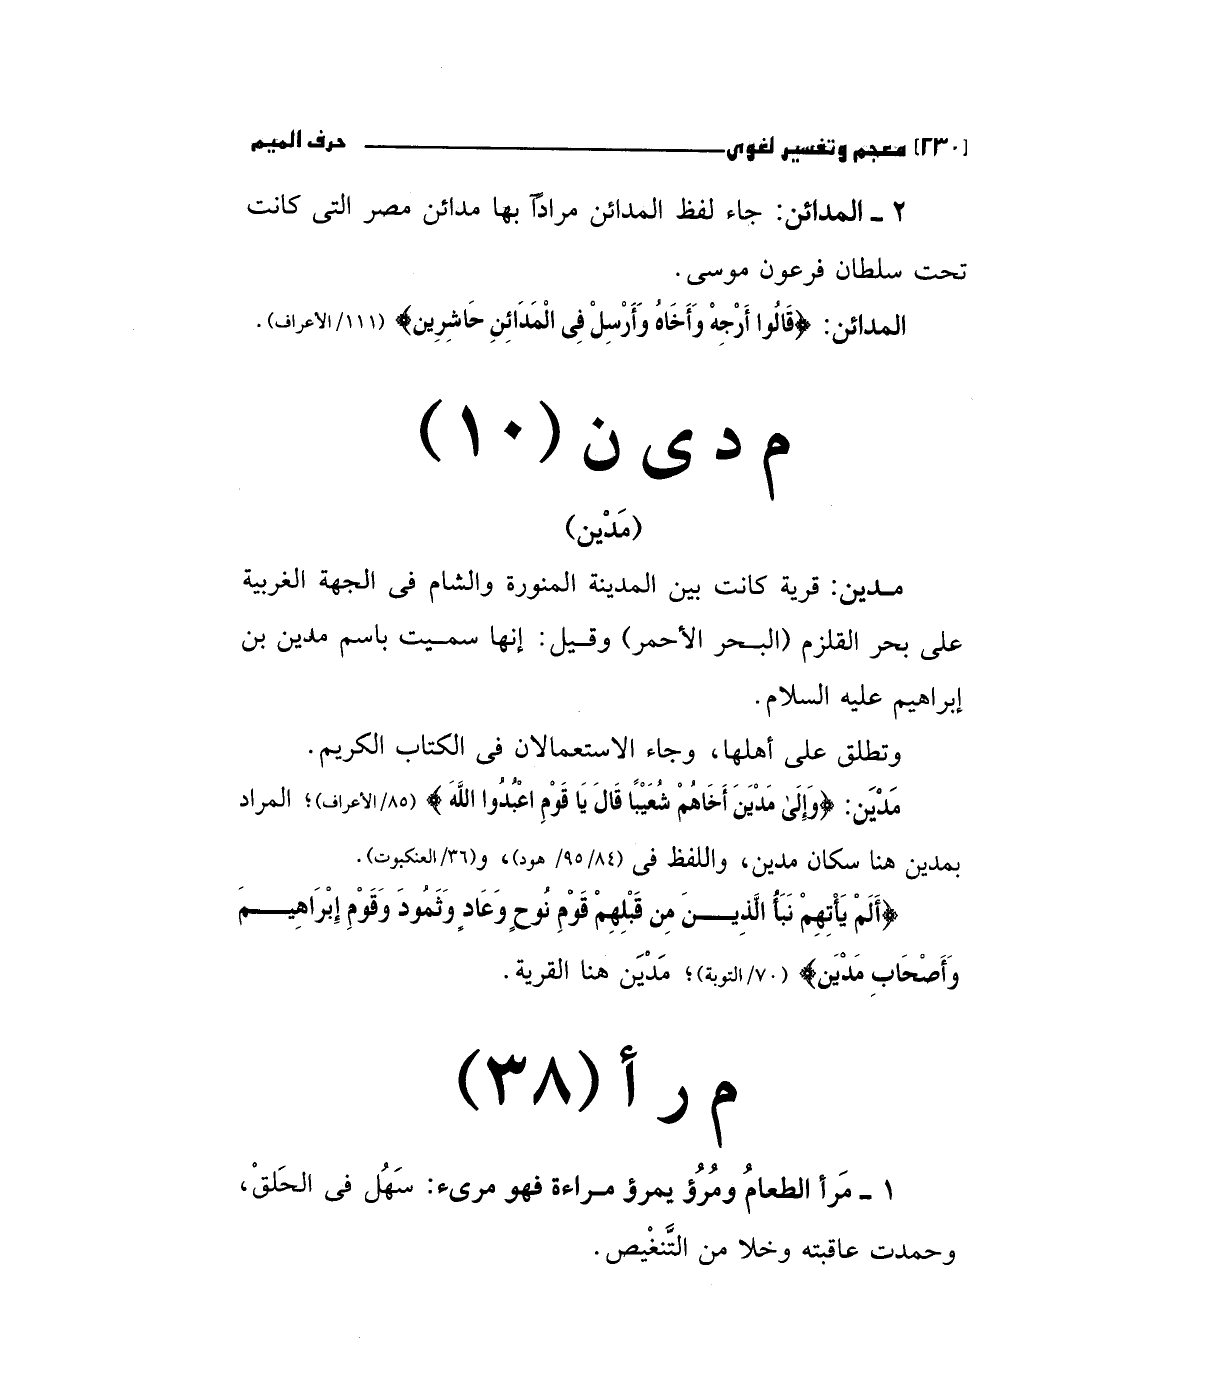 [٢٣٠] معجم وتفسير لغوى ـــــــــ حرف الميم
٢ ـ المدائن: جاء لفظ المدائن مراداً بها مدائن مصر التى كانت
تحت سلطان فرعون موسى.
المدائن: ﴿قَالُوا أَرْجِهْ وَأَخَاهُ وَأَرْسِلْ فِى الْمَدَائِنِ حَاشِرِين﴾ (١١١/الأعراف).
م د ى ن (١٠)
(مَدْين)
مـدين: قرية كانت بين المدينة المنورة والشام فى الجهة الغربية
على بحر القلزم (البـحر الأحمر) وقـيل: إنها سمـيت باسم مدين بن
إبراهيم عليه السلام.
وتطلق على أهلها، وجاء الاستعمالان فى الكتاب الكريم.
مَدْيَن: ﴿وَإِلَىٰ مَدْيَنَ أَخَاهُمْ شُعَيْبًا قَالَ يَا قَوْمِ اعْبُدُوا اللَّهَ ﴾ (٨٥/الأعراف)؛ المراد
بمدين هنا سكان مدين، واللفظ فى (٩٥/٨٤/ هود)، و(٣٦/ العنكبوت).
﴿أَلَمْ يَأْتِهِمْ نَبَأُ الَّذِيـــنَ مِن قَبْلِهِمْ قَوْمِ نُوحٍ وَعَادٍ وَثَمُودَ وَقَوْمِ إِبْرَاهِيـــمَ
وَأَصْحَابِ مَدْيَن﴾ (٧٠/ التوبة)؛ مَدْيَن هنا القرية.
م ر أ (٣٨)
١ ـ مَرأ الطعامُ ومُرُؤ يمرؤ مـراءة فهو مرىء: سَهُل فى الحَلقْ،
وحمدت عاقبته وخلا من التَّنغْيص.